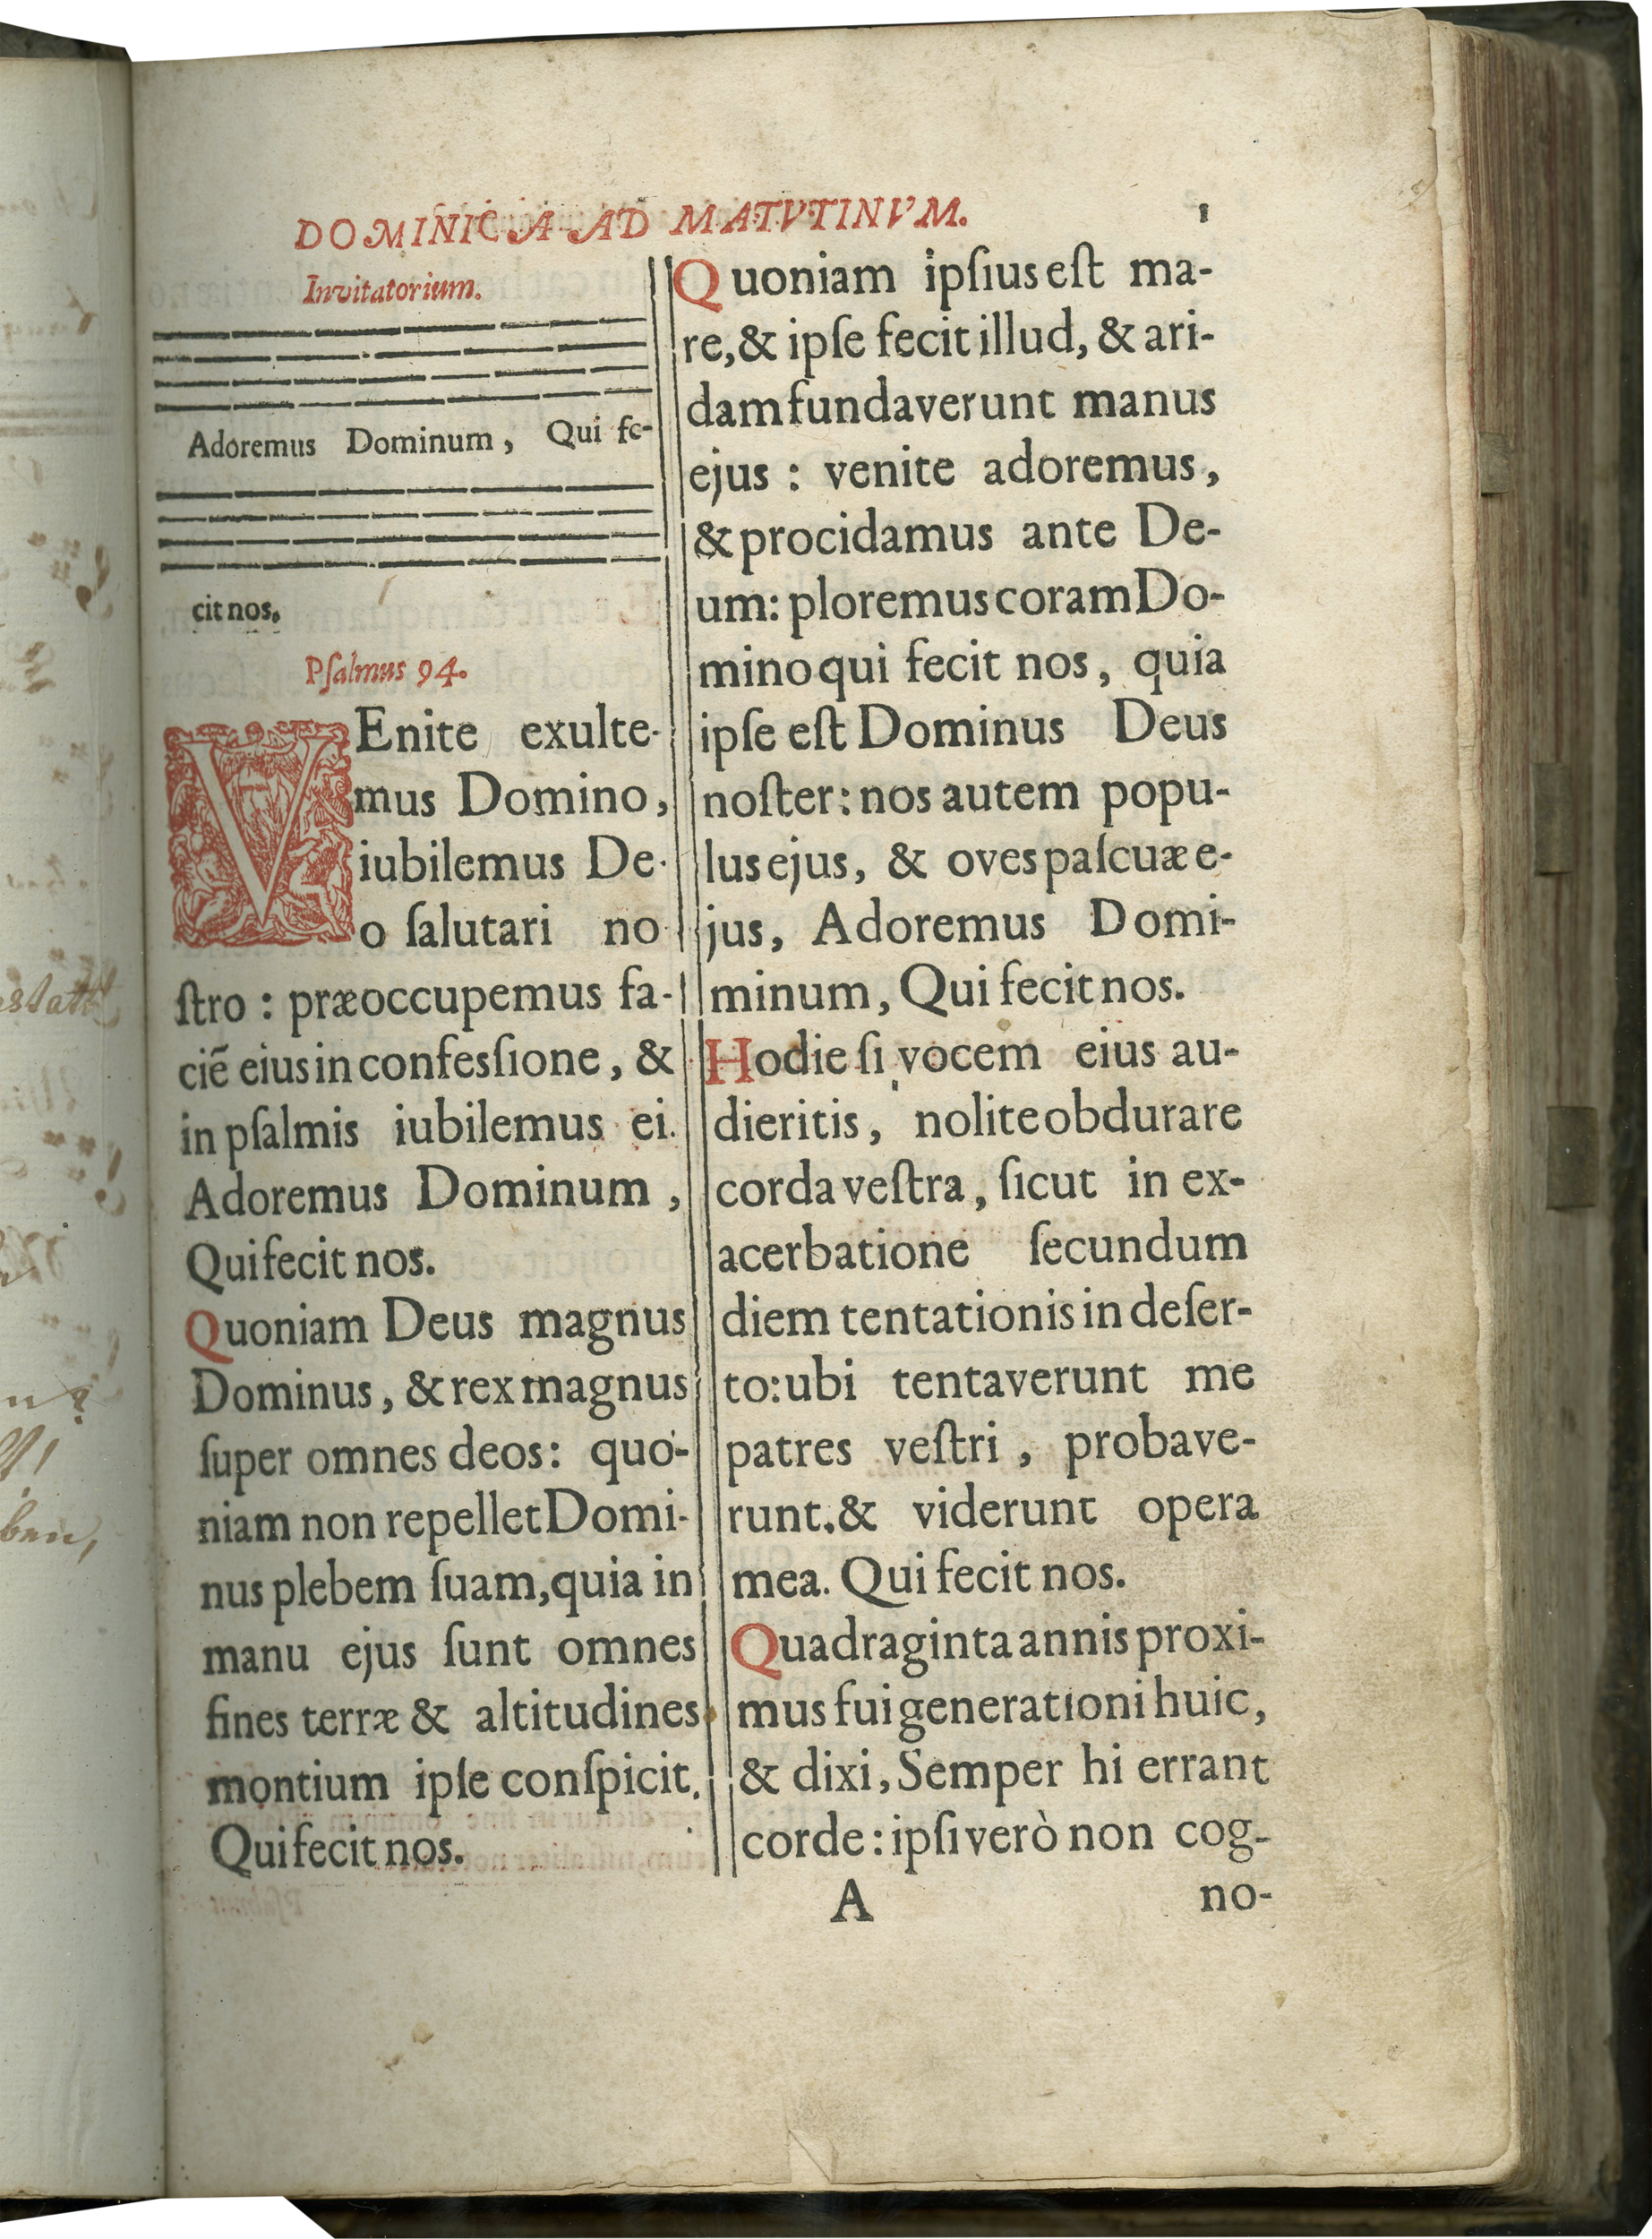 DOMINICA AD MATVTINVM. 1
Invitatorium.
Adoremus Dominum, Qui fe-
cit nos.
Pſalmus 94.
VEnite exulte-
mus Domino,
iubilemus De-
o ſalutari no
ſtro : præoccupemus fa-
ciē eius in confesſione, &
in pſalmis iubilemus ei.
Adoremus Dominum ,
Qui fecit nos.
Quoniam Deus magnus
Dominus, & rex magnus
ſuper omnes deos: quo-
niam non repellet Domi-
nus plebem ſuam, quia in
manu ejus ſunt omnes
fines terræ & altitudines
montium ipſe conſpicit.
Qui fecit nos.
Quoniam ipſius eſt ma-
re, & ipſe fecit illud, & ari-
dam fundaverunt manus
ejus : venite adoremus,
& procidamus ante De-
um: ploremus coram Do-
mino qui fecit nos, quia
ipſe eſt Dominus Deus
noſter: nos autem popu-
lus ejus, & oves paſcuæ e-
jus, Adoremus Domi-
minum, Qui fecit nos.
Hodie ſi vocem eius au-
dieritis, nolite obdurare
corda veſtra, ſicut in ex-
acerbatione ſecundum
diem tentationis in deſer-
to: ubi tentaverunt me
patres veſtri , probave-
runt. & viderunt opera
mea. Qui fecit nos.
Quadraginta annis proxi-
mus fui generationi huic,
& dixi, Semper hi errant
corde: ipſi verò non cog-
A no-